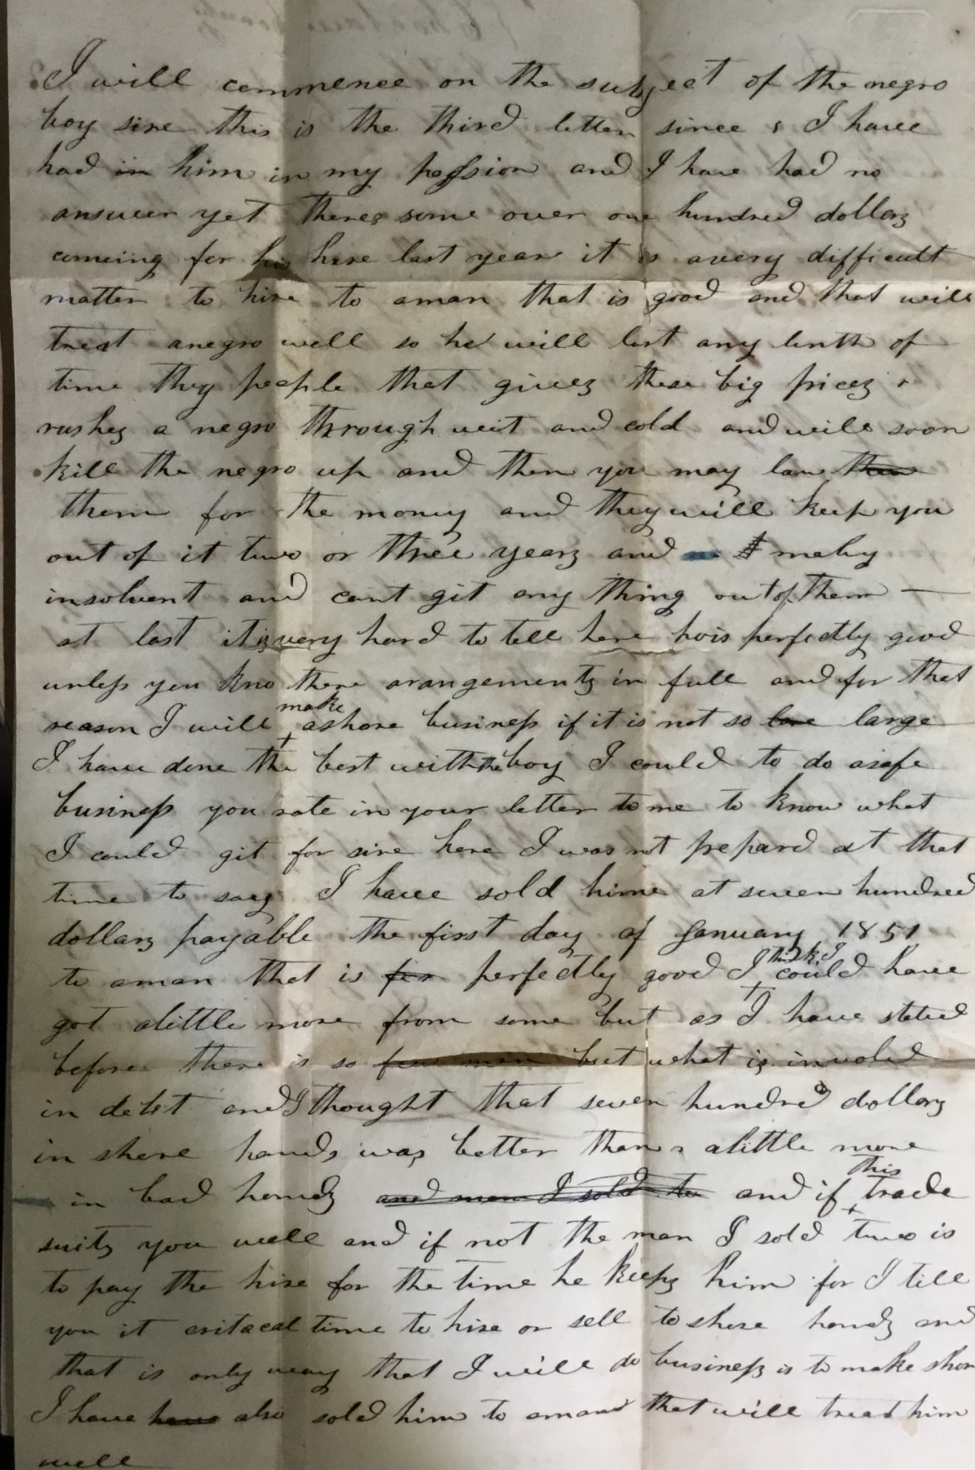 I will commence on the subject of the negro
boy sire this is the third letter since I have
had in him in my possion and I have had no
answer yet theres some over one hundred dollars
comeing for his hire last year it is avery difficult
matter to hire to aman that is good and that will
treat anegro well so he will last any linth of
time they people that gives these big prices
rushes a negro through weit and cold and will soon
kill the negro up and then you may law then
them for the money and they will keep you
out of it two or three years and maby
insolvent and cant git any thing out of them
at last it is very hard to tell here hois perfectly good
unless you kno there arangements in full and for that
reason I will make ashore business if it is not so large
I have done the best with the boy I could to do asafe
business you rote in your letter to me to know what
I could git for sire here I was not prepard at that
time to say I have sold hime at seven hundred
dollars payable the first day of January 1851
to aman that is for perfectly good I think I could have
got alittle more from some but as I have stated
before there is so few men but what is involed
in debt and I thought that seven hundred dollars
in shore hands was better than alittle more
in bad hands and man I sold to and if this trade
suits you well and if not the man I sold two is
to pay the hire for the time he keeps him for I till
you it critacal time to hire or sell to shore hands and
that is only way that I will do business is to make shor
I have have also sold him to aman that will treat him
well